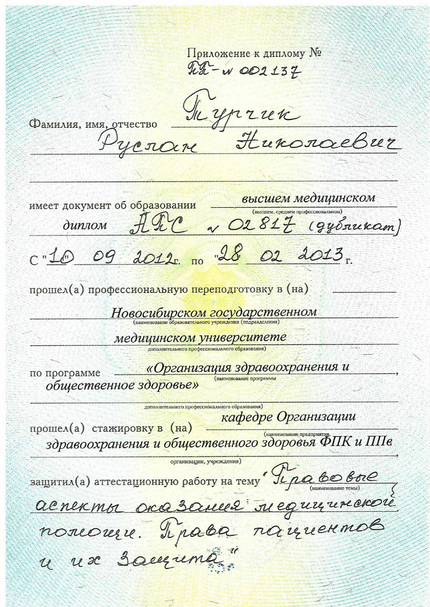 Приложение к диплому №
ПП-№ 002137
Фамилия, имя, отчество Турчик
Руслан Николаевич
имеет документ об образовании высшем медицинском
(высшем, среднем профессиональном)
диплом АПС № 02817 (дубликат)
С "10" 09 2012г. по "28 02 2013 г.
прошел(а) профессиональную переподготовку в (на)
Новосибирском государственном
(наименование образовательного учреждения (подразделения)
медицинском университете
дополнительного профессионального образования)
по программе «Организация здравоохранения и
(наименование программы
общественное здоровье»
дополнительного профессионального образования)
прошел(а) стажировку в (на) кафедре Организации
(наименование предприятия,
здравоохранения и общественного здоровья ФПК и ППв
организации, учреждения)
защитил(а) аттестационную работу на тему "Правовые
(наименование темы)
аспекты оказания медицинской
помощи. Права пациентов
и их защита"